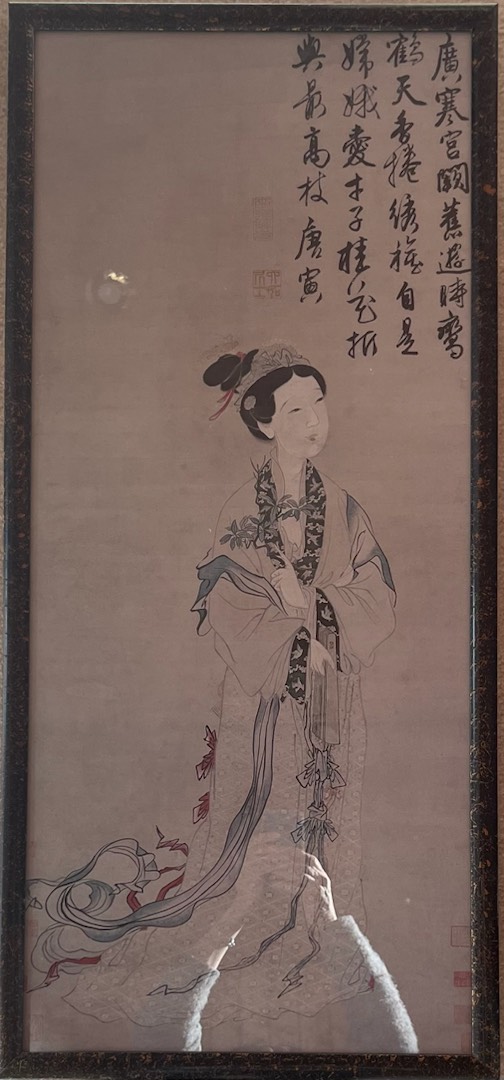 廣寒宮闕舊遊時鸞
鶴天香捲繡旌自是
嫦娥愛才子桂花折
與最高枝 唐寅